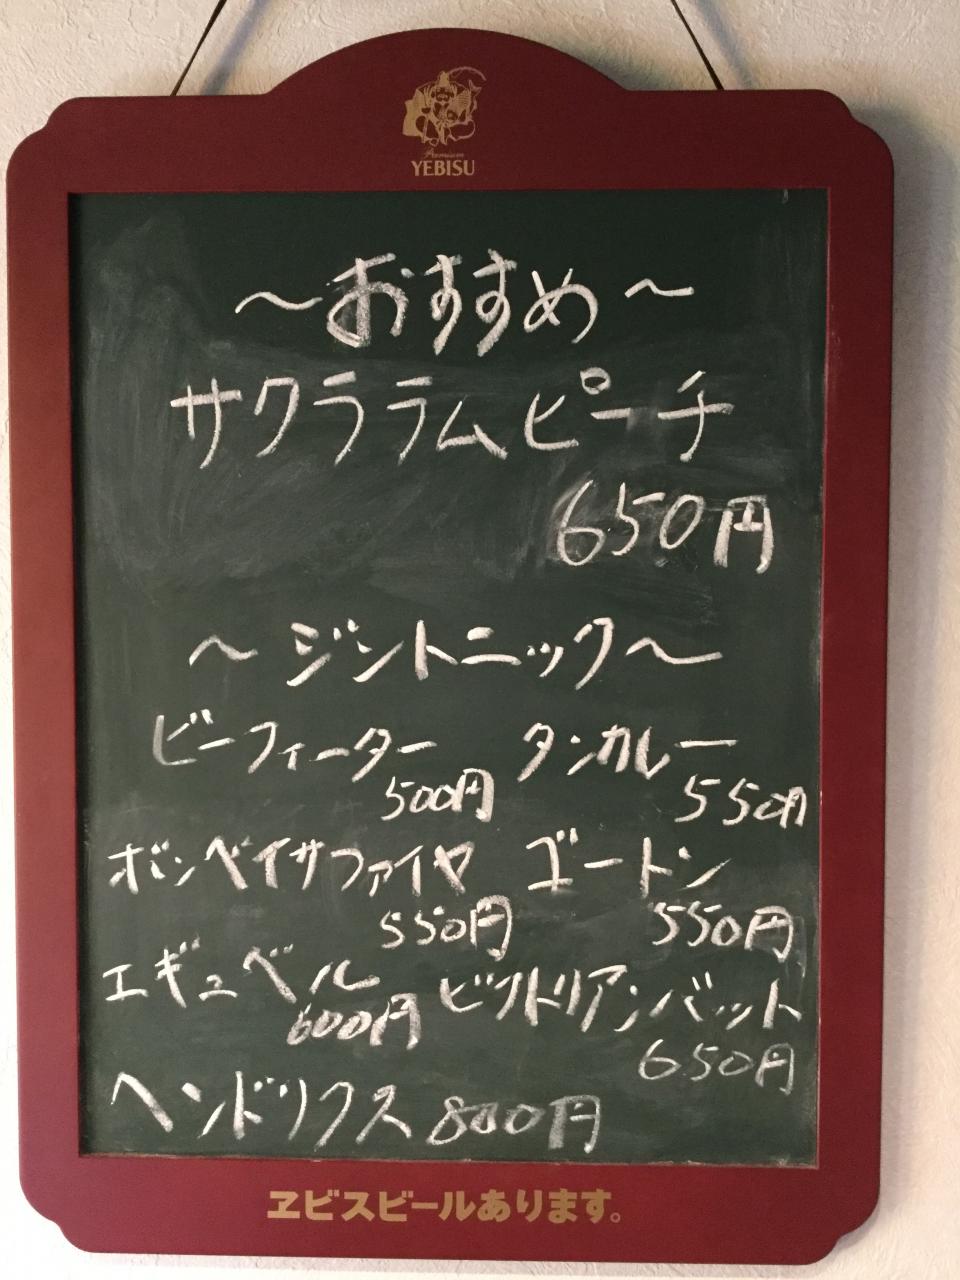 Premium
YEBISU
～おすすめ～
サクララムピーチ
650円
～ジントニック～
ビーフィーター タンカレー
500円 550円
ボンベイサファイヤ ゴードン
550円 550円
エギュベル ビクトリアンバット
600円 650円
ヘンドリクス 800円
ヱビスビールあります。